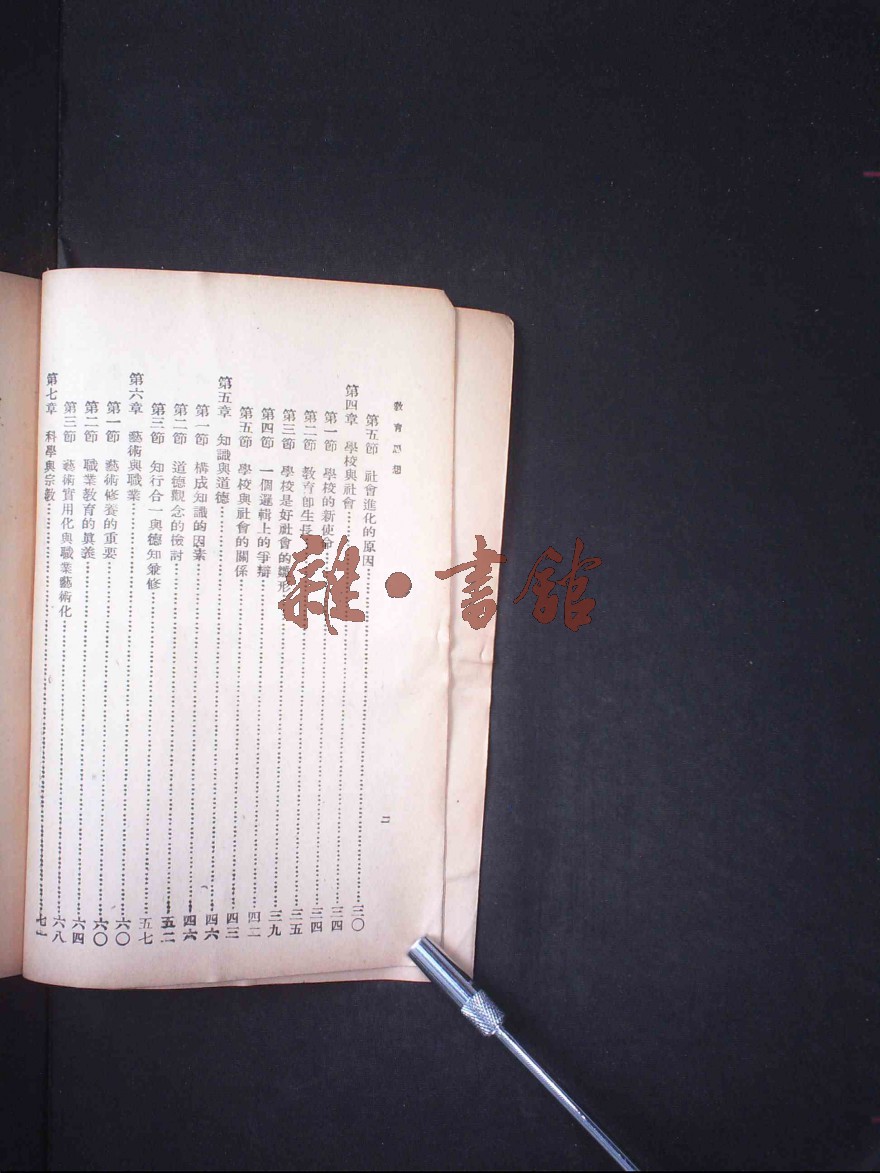 教育思想
二
第五節 社會進化的原因 三〇
第四章 學校與社會 三四
第一節 學校的新使命 三四
第二節 教育即生長 三五
第三節 學校是好社會的雛形 三九
第四節 一個邏輯上的爭辯 四二
第五節 學校與社會的關係 四三
第五章 知識與道德 四六
第一節 構成知識的因素 四六
第二節 道德觀念的檢討 五二
第三節 知行合一與德知兼修 五七
第六章 藝術與職業 六〇
第一節 藝術修養的重要 六〇
第二節 職業教育的真義 六四
第三節 藝術實用化與職業藝術化 六八
第七章 科學與宗教
雜·書館